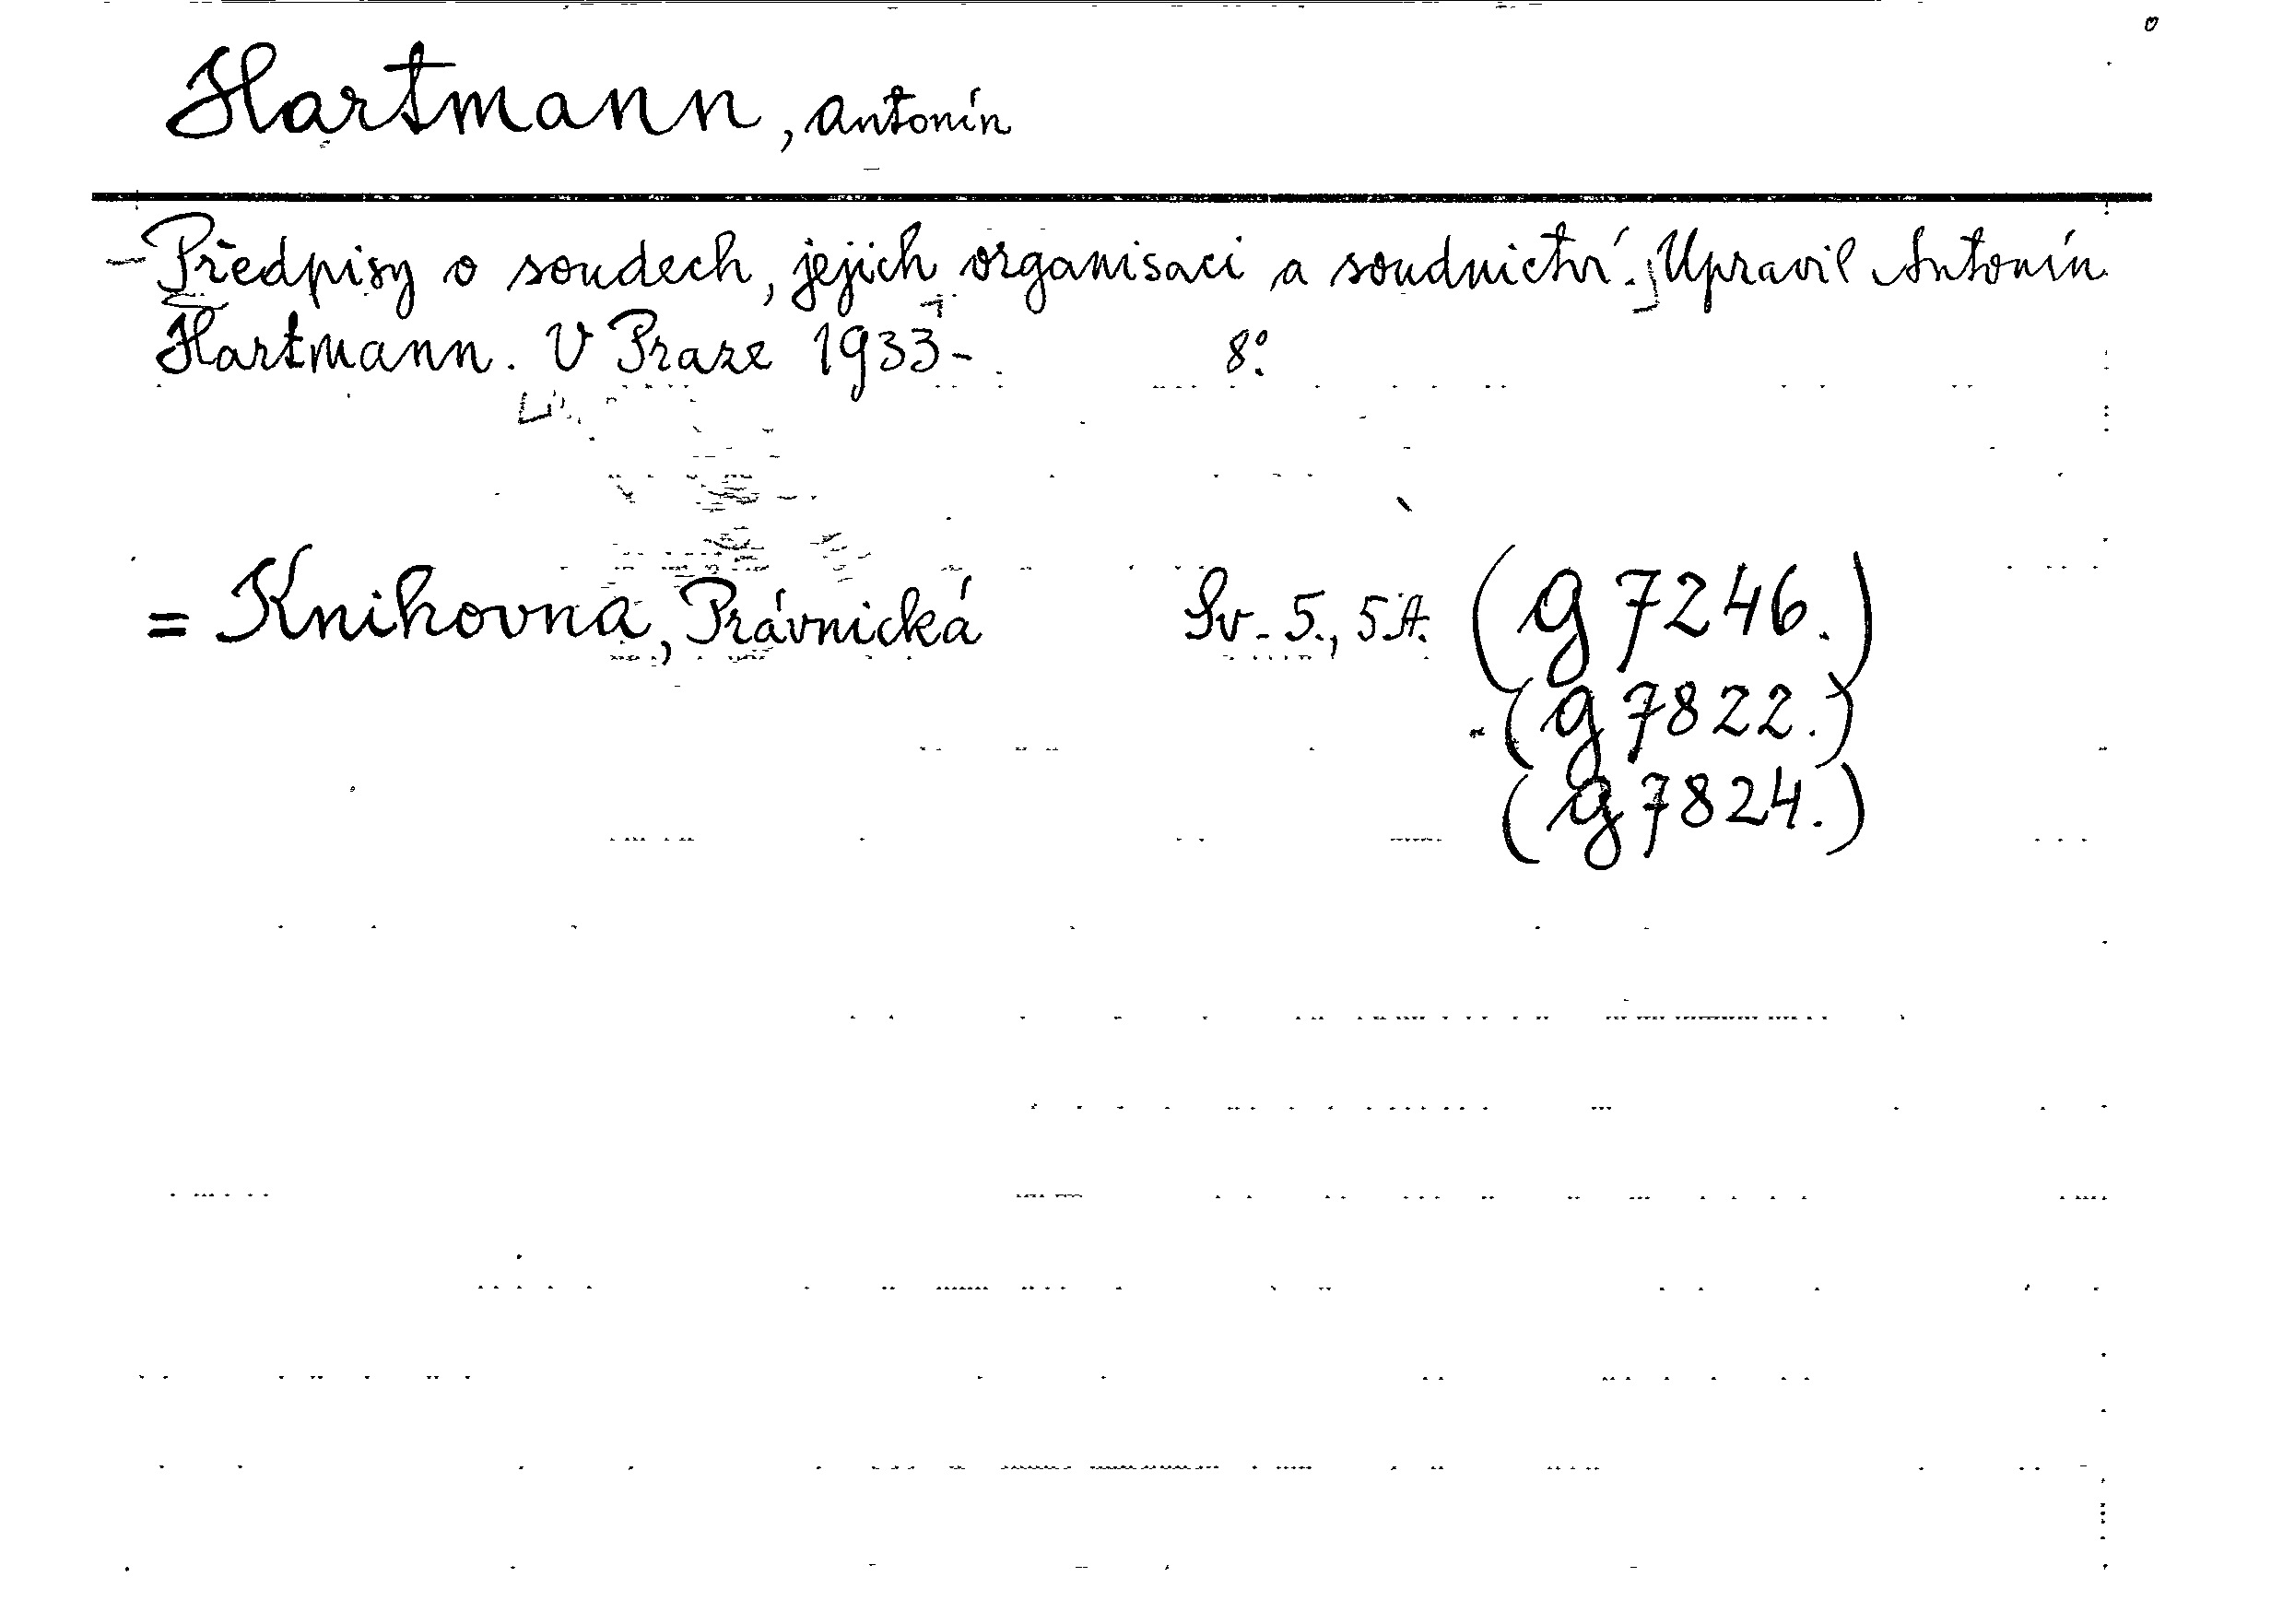 Hartmann, Antonín
- Předpisy o soudech, jejich organisaci a soudnictví. Upravil Antonín
Hartmann. V Praze 1933- 8°.
= Knihovna, Právnická Sv. 5., 5A. (g 7246.)
(g 7822.)
(g 7824.)